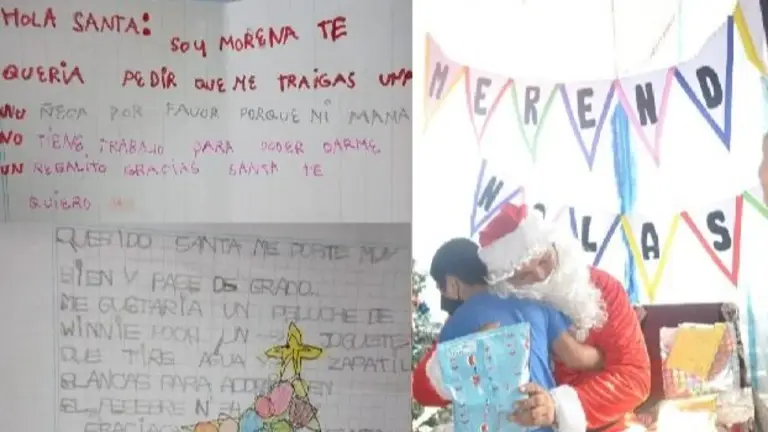 HOLA SANTA:
SOY MORENA TE
QUERIA PEDIR QUE ME TRAIGAS UNA
MU ÑECA POR FAVOR PORQUE MI MAMA
NO TIENE TRABAJO PARA PODER DARME
UN REGALITO GRACIAS SANTA TE
QUIERO
QUERIDO SANTA ME PORTE MUY
BIEN Y PASE DE GRADO.
ME GUSTARIA UN PELUCHE DE
WINNIE POOH UN JUGUETE
QUE TIRE AGUA ZAPATIL
BLANCAS PARA EN
EL N°
GRACIAS
MEREND
LAS